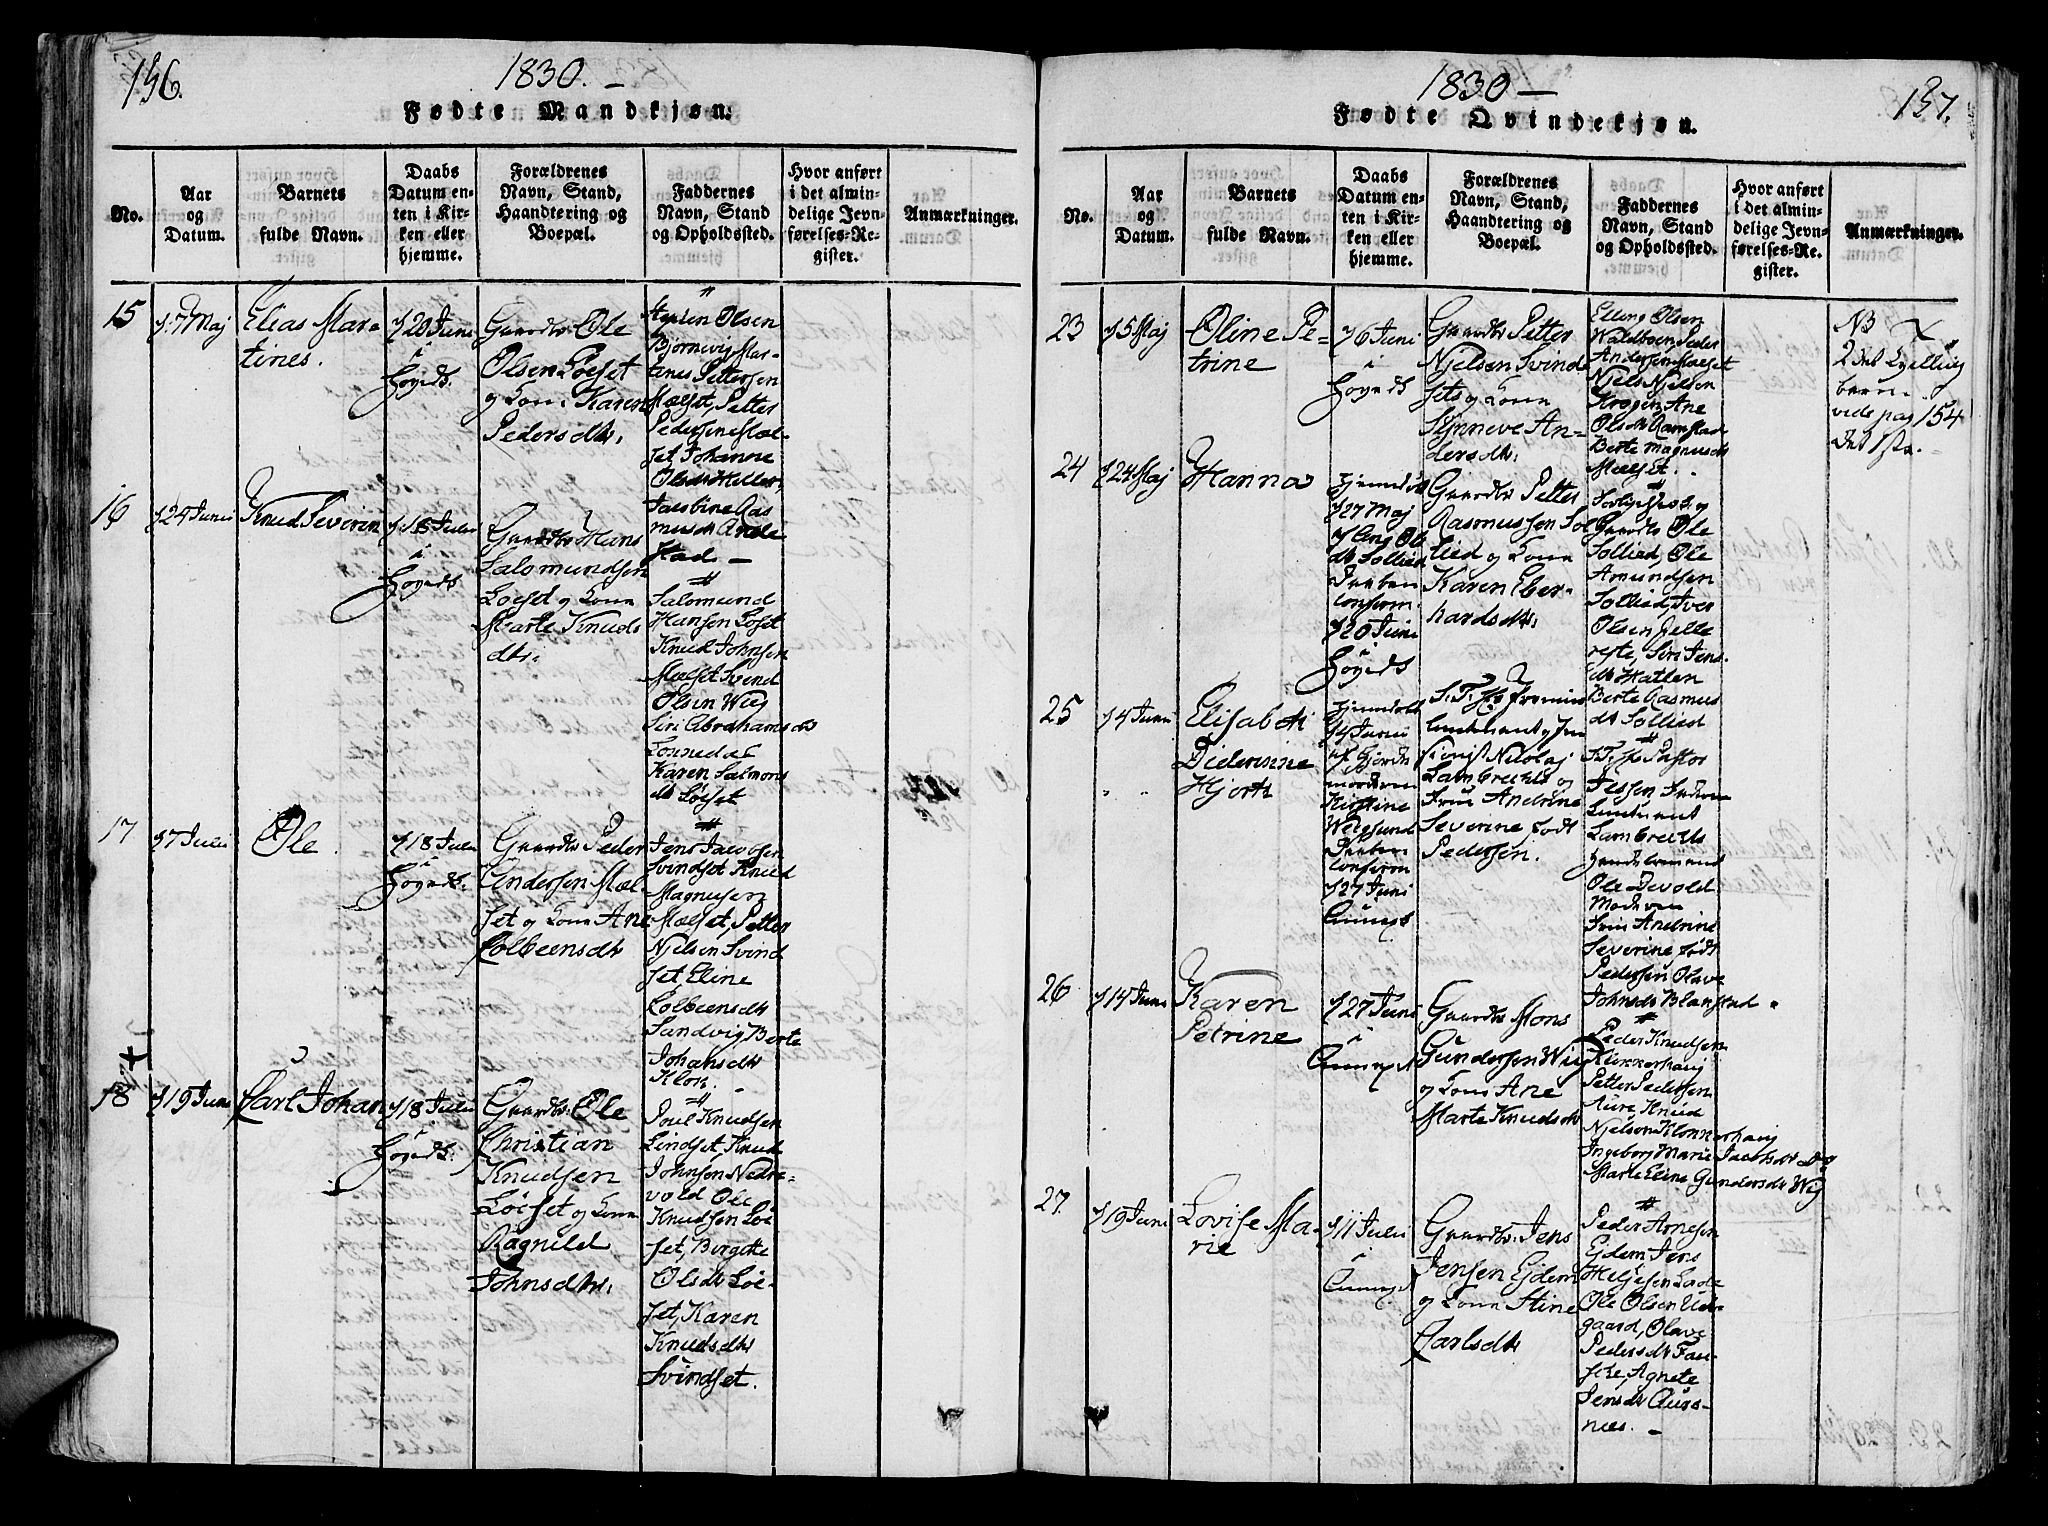 156.
1830. –
Fødte Mandkjøn.
No.
Aar
og
Datum.
Barnets
fulde Navn.
Daabs
Datum en-
ten i Kir-
ken eller
hjemme.
Forældrenes
Navn, Stand,
Haandtering og
Boepæl.
Faddernes
Navn, Stand
og Opholdssted.
Hvor anført
i det almin-
delige Jevn-
førelses-Re-
gister.
Anmærkninger.
15
17 Maj
Elias Mar-
tines.
20 Juni
i
Gaardbr. Ole
Olsen Løeset
og Kone Karen
Pedersdtr.
Olsen
Bjørnevig Mar-
tines Pettersen
Mælset, Petter
Pedersen Mæl-
set, Johanne
Jacobine Ras
musdt
stad –
16
24 Juni
Knud Severin
18 Juli
i
Gaardbr Hans
Salomundsen
Løeset og Kone
Marte Knuds
dtr.
Salomund
Hansen Løset
Knud Johnsen
Mælset Svend
Olsen Wiig
Siri Abrahamsdt
Karen Salmons
dt Løeset
17
7 Juli
Ole
18 Juli
i
Gaardbr Peder
Andersen Mæl-
set og Kone Ane
Colbeensdtr
Jens Jacobsen
Svindset Knud
Magnusen
Mælset, Petter
Njelsen Svind
set, Eline
Colbeensdtr
Sandvig Berte
Johansdtr
Klok.
18
19 Juni
Carl Johan
18 Juli
i
Gaardbr. Ole
Christian
Knudsen
Løeset og Kone
Ragnild
Johnsdtr.
Poul Knudsen
Lindset, Knud
Johnsen Nedre-
vold Ole
Knudsen Løe
set, Bergitte
Olsdtr Løe-
set, Karen
Knudsdtr
Svindset.
1830 –
157.
Fødte Qvindekjøn.
No.
Aar
og
Datum.
Barnets
fulde Navn.
Daabs
Datum en-
ten i Kir-
ken eller
hjemme.
Forældrenes
Navn, Stand,
Haandtering og
Boepæl.
Faddernes
Navn, Stand
og Opholdssted.
Hvor anført
i det almin-
delige Jevn-
førelses-Re-
gister.
Anmærkninger.
23
5 Maj
Oline Pe-
trine
6 Juni
i
Gaardbr Petter
Njelsen Svind
set og Kone
Synneve An-
dersdtr.
Elling Olsen
Peder
Andersen Mælset
Njels Njelsen
Krogen, Ane
Olsdt Ramstad
Berte Magnusdt
Mælset.
NB
2det Tvelling
barn
vide pag 154
det 1ste.
24
24 Maj
Hanna
27 Maj
confirm.
20 Juni
i
Gaardbr Petter
Rasmussen Sol
lied og Kone
Karen Eber-
hardsdtr.
Gaardbr Ole
Sollied, Ole
Amundsen
Sollied, Iver
Olsen
Siri Jens
dt Hatlen
Berte Rasmus
dt Sollied
25
4 Juni
Elisabeth
Diderinne
Hjorth
4 Juni
Kirstine
confirm
27 Juni
S. T. Hr Premier
Nikolaj
Lambrechts og
Frue Andrine
Severine født
Pedersen.
S. T. Hr Pastor
Jessen
Lambrechts
Ole Devold
Moderen
Frue Andrine
Severine født
Pedersen Olave
Johnsdt Blanstad.
26
14 Juni
Karen
Petrine
27 Juni
i
Gaardbr Mons
Gundersen Wiig
og Kone Ane
Marte Knudsdt
Peder Knudsen
Petter Pedersen
Aure Knud
Njelsen Klokkerhaug
Ingeborg Marie Jacobsdt
Marte Eline Gundersdt Wiig
27.
19 Juni
Lovise Ma-
rie
11 Juli
i
Gaardbr. Jens
Jensen Ejdem
og Kone Stine
Carlsdtr
Peder Arnesen
Ejdem Jens
Helgesen Lade
Ole Olsen Ud-
gaard, Olave
Pedersdt Fau-
ske, Agnete
Jensdt Aurs-
næs. –